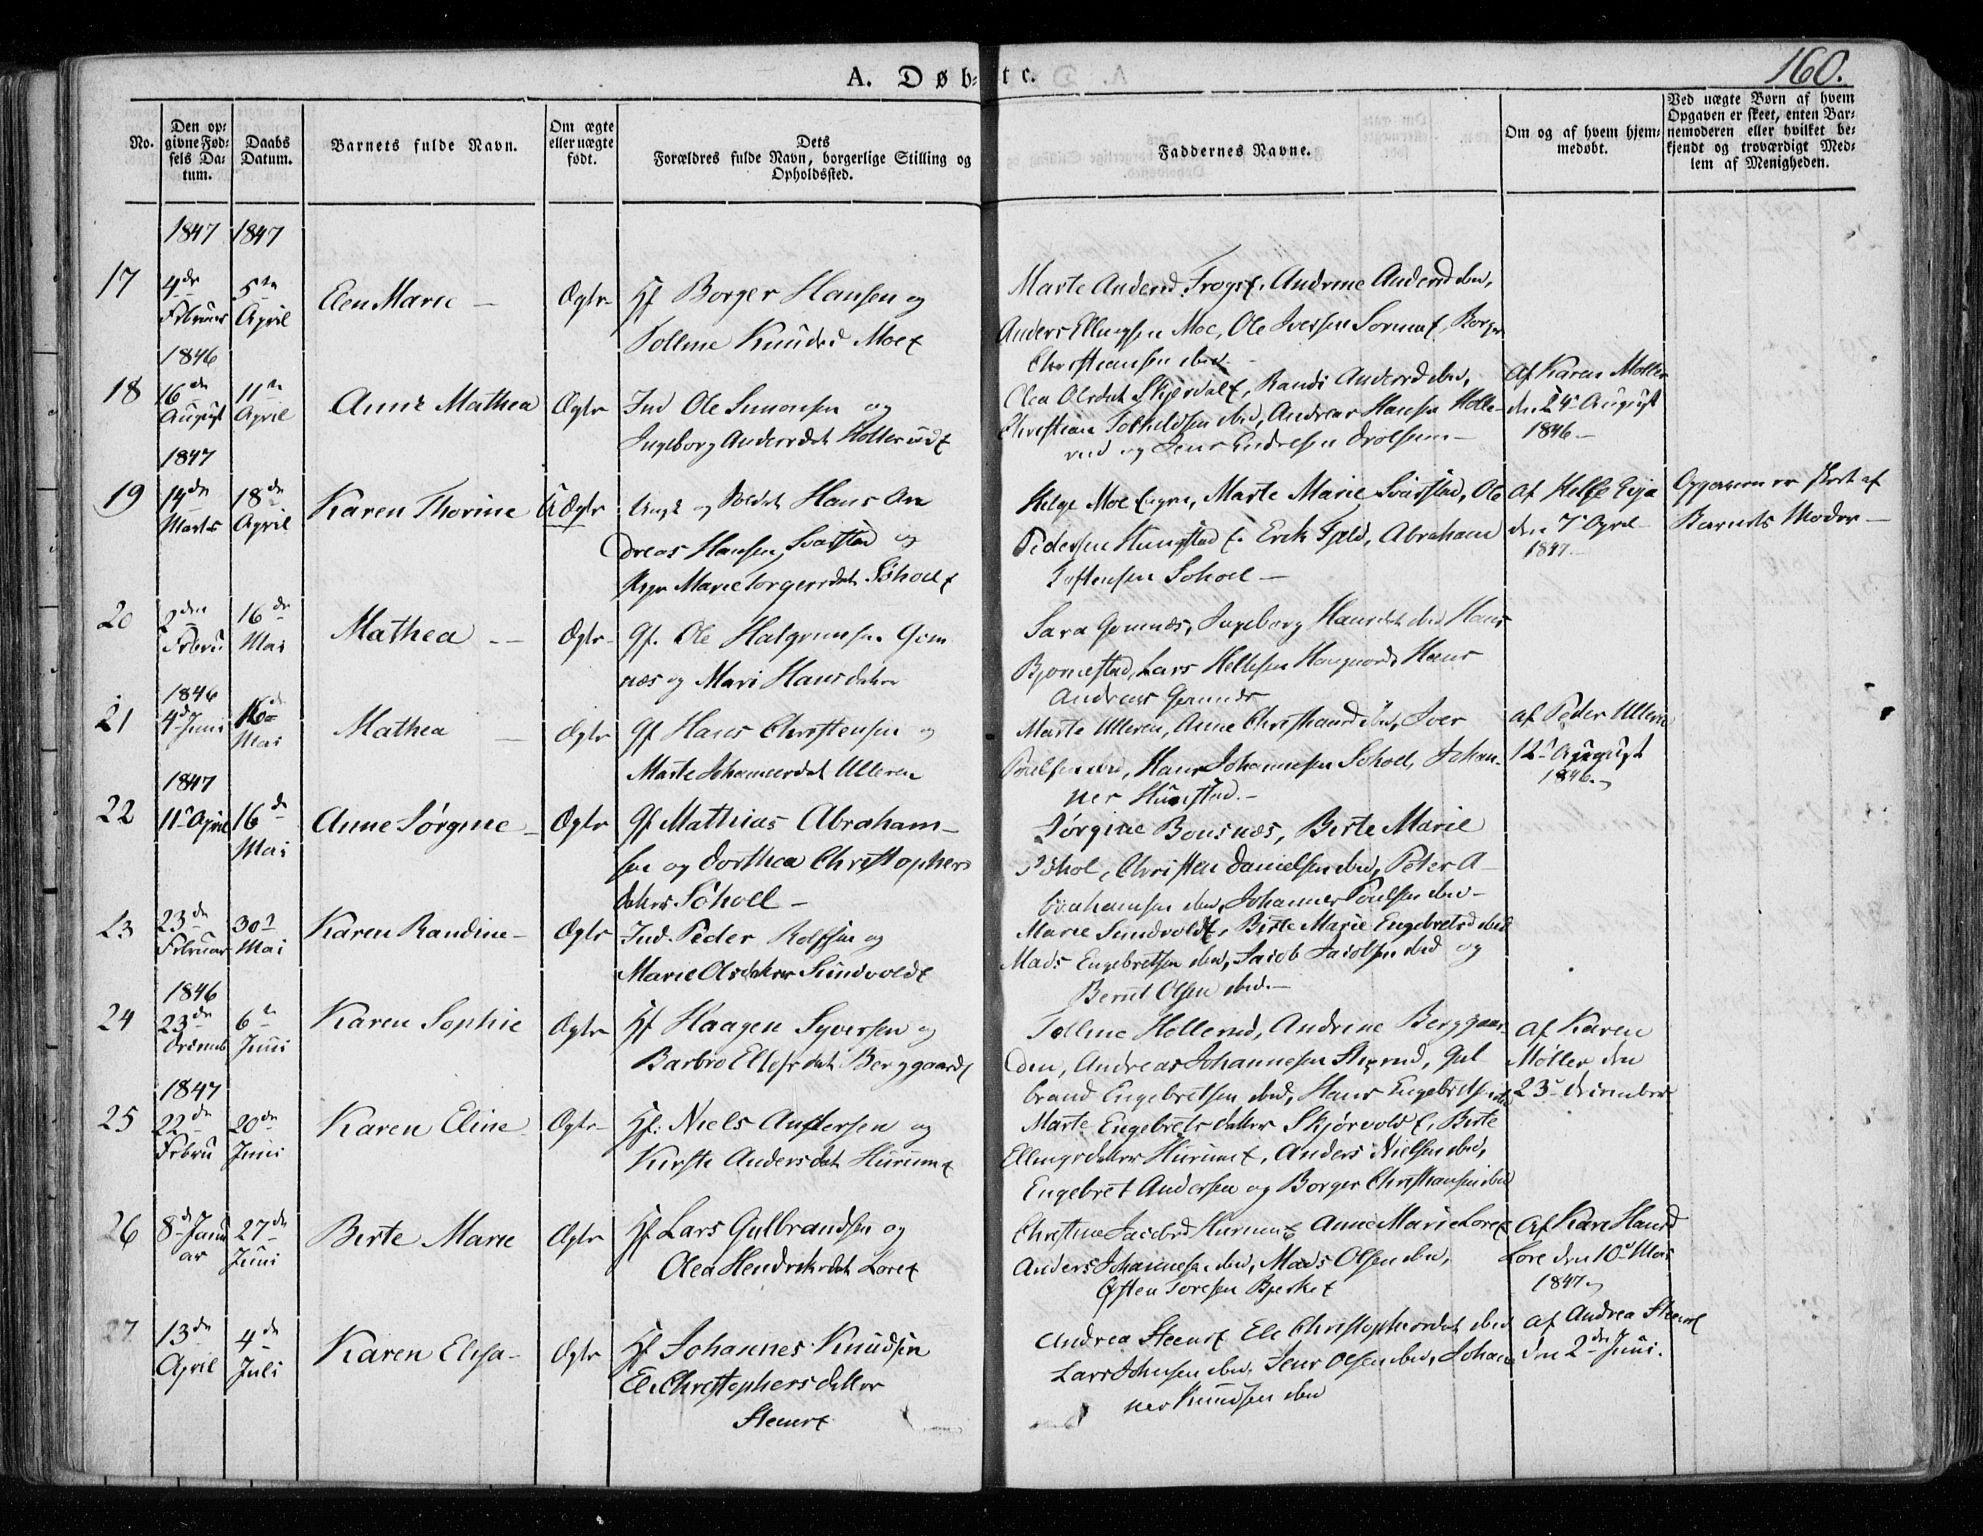 160.
A. Døb= te.
No.
Den op=
givne Fød=
sels Da=
tum.
Daabs
Datum.
Barnets fulde Navn.
Om ægte
eller uægte
født.
Dets
Forældres fulde Navn, borgerlige Stilling og
Opholdssted.
Faddernes Navne.
Om og af hvem hjem=
medøbt.
Ved uægte Børn af hvem
Opgaven er skeet, enten Bar=
nemoderen eller hvilket be=
kjendt og troværdigt Med=
lem af Menigheden.
1847 1847
17
4de
Februar
5te
April
Elen Marie —
Ægte
Hf Borger Hansen og
Knudsd Moe
Marte Andersd Andrine Andersd ibid,
Anders Ellingsen Moe, Ole Iversen Borger
Christiansen ibid.
1846
18
16de
August
11te
April
Anne Mathea
Ægte
Ind Ole Simonsen og
Ingeborg Andersdat Hollerud
Olea Olsdat Randi Andersd ibid,
Christian ibid, Andreas Hansen Holle-
rud og Jens
Af Karen Møller
den 24 August
1846 —
1847
19
14de
Marts
18de
April
Karen Thorine
UÆgte
Ungk og Soldat Hans An
dreas Hansen Svarstad og
Pige Marie Torgersdat Søhoel
Helge Moe Marte Marie Svarstad, Ole
Pedersen Erik Fjeld, Abraham
Søhoel —
Af
den 7 April
1847
Opgaven er skeet af
Barnets Moder —
20
2den
Febru
16de
Mai
Mathea —
Ægte
Gf. Ole Halgrimsen Gom
næs og Mari Hansdatter
Sara Gomnæs, Ingeborg Hansdat ibid Hans
Bjørnestad, Lars Hans
Andreas Gomnæs
1846
21
4d Juni
16de
Mai
Mathea —
Ægte
Gf Hans Christensen og
Marte Johannesdat Ulleren
Marte Ulleren, Anne ibid, Iver
Poulsen ibid, Hans Johannesen Søhoel, Johan-
nes
af Peder Ulleren
12 August
1846
1847
22
11 April
16de
Mai
Anne Sørgine
Ægte
Gf Mathias Abraham-
sen og Dorthea Christophers
datter Søhoel —
Jørgine Bonsnæs, Birte Marie
Søhol, Christen Danielsen ibid, Peter A-
brahamsen ibid, Johannes Poulsen ibid —
23
23de
Februar
30
Mai
Karen Randine
Ægte
Ind. Peder Rolfsen og
Marie Olsdatter Sundvold
Marie Sundvold, Birte Marie Engebretsd ibid
Mads Engebretsen ibid, Jacob Jacobsen ibid og
Bernt Olsen ibid. —
1846
24
23de
Decemb
6te
Juni
Karen Sophie
Ægte
Hf Haagen Syversen og
Barbro Ellefsdat Berggaard
Hollerud, Andrine Berggaar-
den, Andreas Johannesen Gul-
brand Engebretsen ibid, Hans Engebretsen
af Karen
Møller den
23 December
1847
25
22de
Febru
20de
Juni
Karen Eline
Ægte
Hf. Niels Andersen og
Kirste Andersdat Hurum
Marte Engebretsdatter Skjørvold, Birte
Ellingsdatter Hurum, Anders Nielsen ibid,
Engebret Andersen og Borger Christiansen ibid
26
8de Janu
ar
27de
Juni
Birte Marie
Ægte
Hf Lars Gulbrandsen og
Olea Hendriksdat Lore
Christine Jacobsd Hurum, Anne Marie Lore
Anders Johannesen ibid, Mads Olsen ibid,
Østen Toresen Bjerke
Af Kari Hansd
Lore den 10 Mai
1847
27
13de
April
4de
Juli
Karen Elisa —
Ægte
Hf Johannes Knudsen
Eli Christophersdatter
Steens
Andrea Steens Eli Christophersdat ibid
Lars Johnsen ibid, Jens Olsen ibid, Johan
nes Knudsen ibid
af Andrea Steens
den 2de Juni.